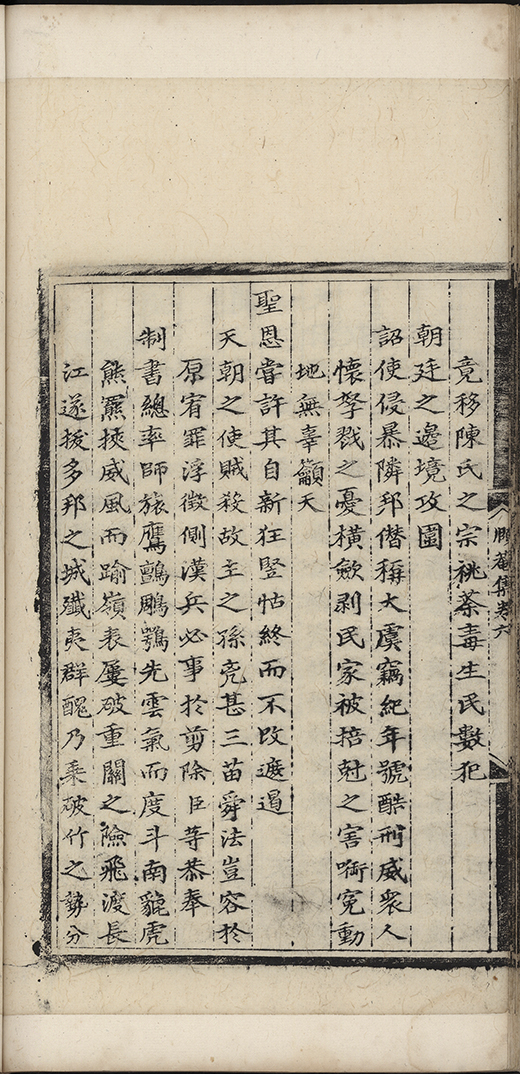 勝菴集卷六
竟移陳氏之宗祧荼毒生民數犯
朝廷之邊境攻圍
詔使侵暴隣邦僭稱大虞竊紀年號酷刑威衆人
懷孥戮之憂橫歛剥民家被掊尅之害啣寃動
地無辜籲天
聖恩嘗許其自新狂竪怙終而不改遮遏
天朝之使賊殺故主之孫亮甚三苗舜法豈容於
原宥罪浮徵側漢兵必事於剪除臣等恭奉
制書總率師旅鷹鸇鵰鶚先雲氣而度斗南貔虎
熊羆挾威風而踰嶺表屢破重關之險飛渡長
江遂拔多邦之城殱夷群醜乃乘破竹之勢分